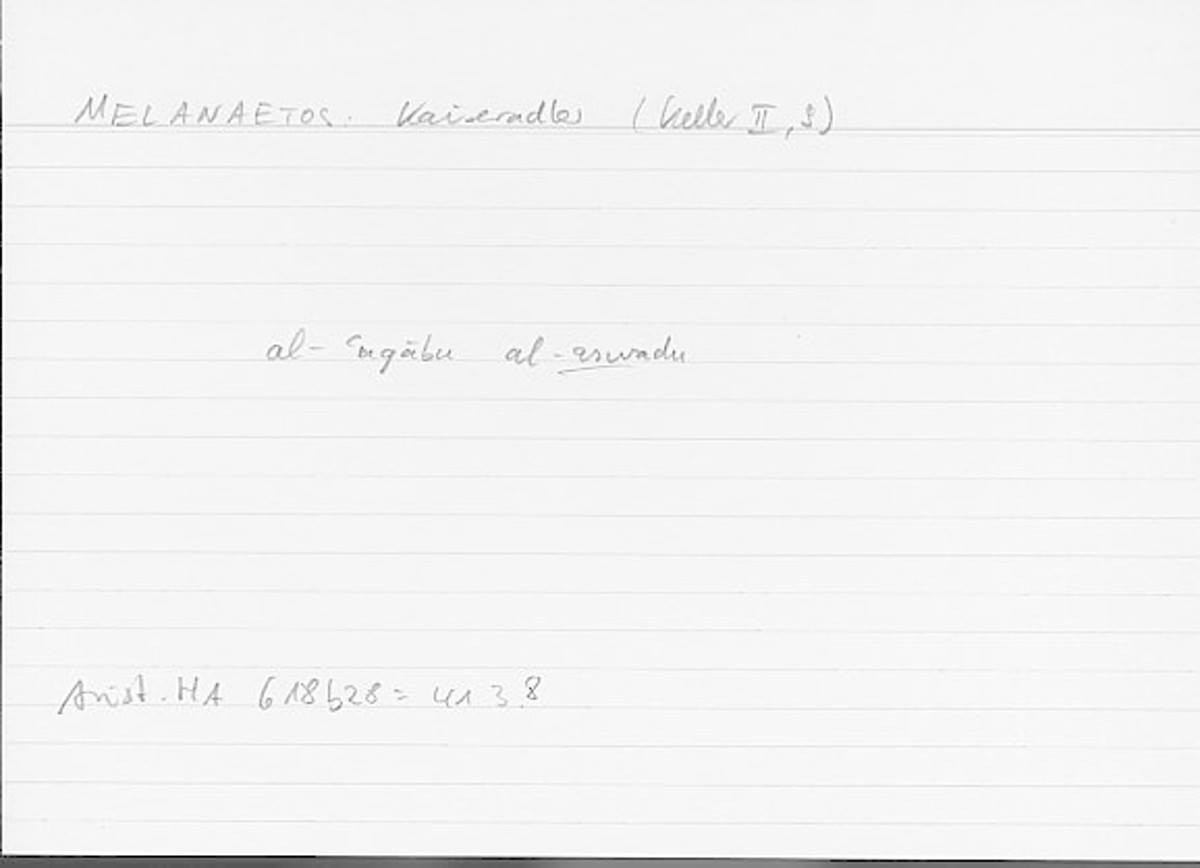 MELANAETOS. Kaiseradler (Keller II, 3)
al-ʿuqābu al-aswadu
Arist. HA 618b28 = 413.8